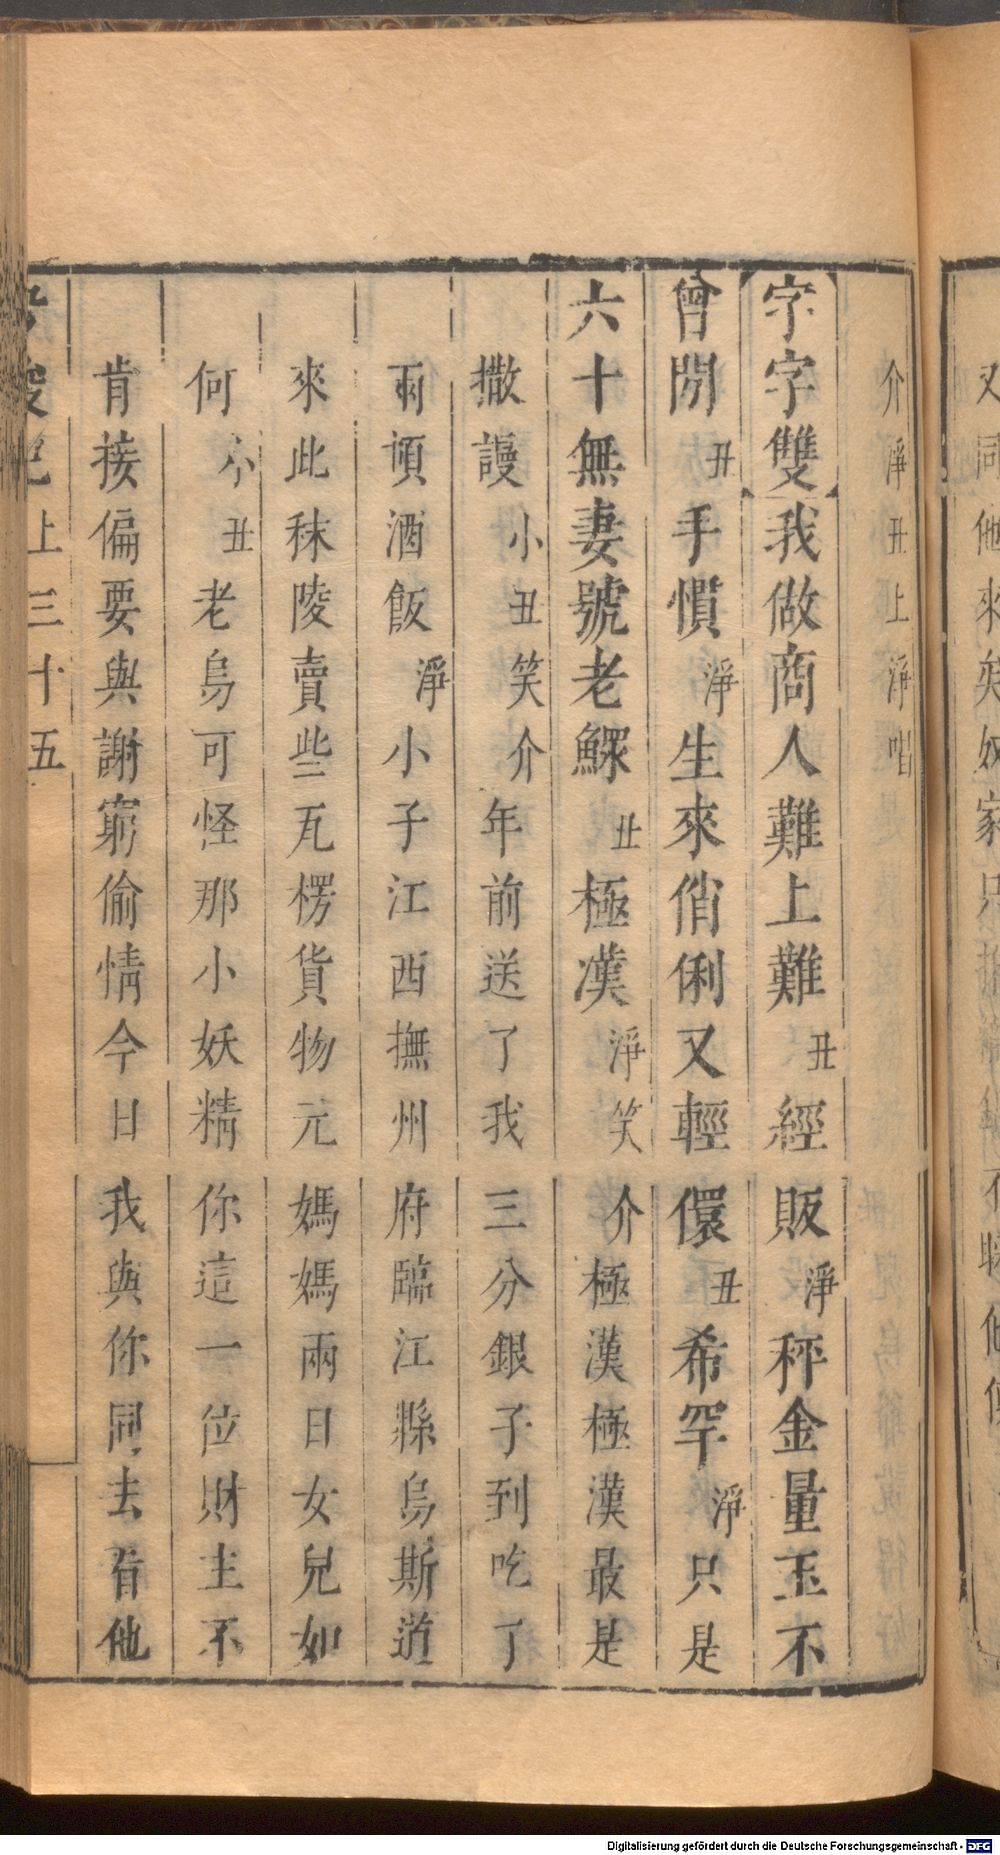 介淨丑上淨唱
字字雙我做商人難上難丑經販淨秤金量玉不
曾閒丑手慣淨生來俏俐又輕儇丑希罕淨只是
六十無妻號老鰥丑極漢淨笑介極漢極漢最是
撒謾小丑笑介年前送了我三分銀子到吃了
兩頓酒飯淨小子江西撫州府臨江縣烏斯道
來此秣陵賣些瓦楞貨物元媽媽兩日女兒如
何小丑老烏可怪那小妖精你這一位財主不
肯接偏要與謝窮偷情今日我與你同去看他
上三十五
又同他來矣奴家只
Digitalisierung gefördert durch die Deutsche Forschungsgemeinschaft - DFG